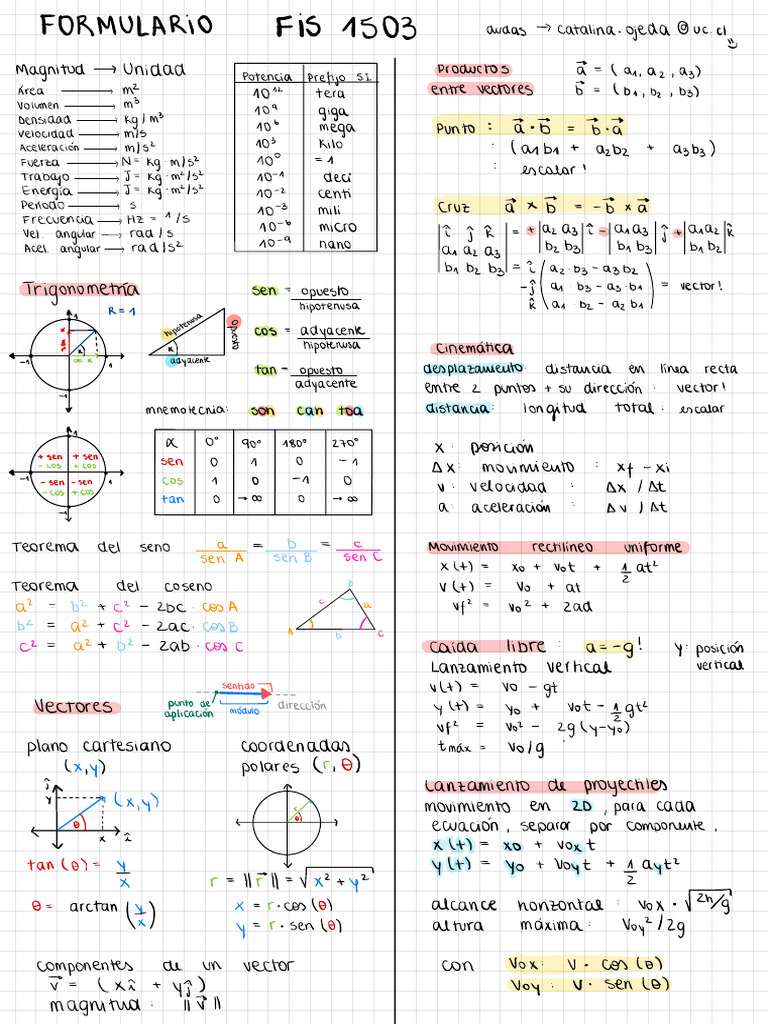 FORMULARIO FIS 1503
dudas → catalina.ojeda@uc.cl
Magnitud → Unidad
Área → m²
Volumen → m³
Densidad → kg/m³
Velocidad → m/s
Aceleración → m/s²
Fuerza → N = kg·m/s²
Trabajo → J = kg·m²/s²
Energía → J = kg·m²/s²
Periodo → s
Frecuencia → Hz = 1/s
Vel. angular → rad/s
Acel. angular → rad/s²
Potencia Prefijo SI
10¹² tera
10⁹ giga
10⁶ mega
10³ kilo
10⁰ = 1
10⁻¹ deci
10⁻² centi
10⁻³ mili
10⁻⁶ micro
10⁻⁹ nano
Trigonometría
R = 1
1
-1 1
-1
sen α
α
cos α
hipotenusa
opuesto
adyacente
α
sen = opuesto / hipotenusa
cos = adyacente / hipotenusa
tan = opuesto / adyacente
mnemotecnia: soh cah toa
1
+ sen + sen
- cos + cos
-1 1
- sen - sen
- cos + cos
-1
α 0° 90° 180° 270°
sen 0 1 0 -1
cos 1 0 -1 0
tan 0 → ∞ 0 → ∞
Teorema del seno a / sen A = b / sen B = c / sen C
Teorema del coseno
a² = b² + c² - 2bc · cos A
b² = a² + c² - 2ac · cos B
c² = a² + b² - 2ab · cos C
B
c a
A b C
Vectores
sentido
punto de aplicación
módulo
dirección
plano cartesiano
(x,y)
ĵ
y
(x,y)
θ
x î
tan(θ) = y/x
θ = arctan(y/x)
coordenadas
polares (r, θ)
r
θ
r = ||r⃗|| = √(x² + y²)
x = r·cos(θ)
y = r·sen(θ)
componentes de un vector
v⃗ = (xî + yĵ)
magnitud: ||v⃗||
Productos a⃗ = (a₁, a₂, a₃)
entre vectores b⃗ = (b₁, b₂, b₃)
Punto: a⃗ • b⃗ = b⃗ • a⃗
: (a₁b₁ + a₂b₂ + a₃b₃)
: escalar!
Cruz a⃗ × b⃗ = -b⃗ × a⃗
|î ĵ k̂| = + |a₂ a₃| î - |a₁ a₃| ĵ + |a₁ a₂| k̂
|a₁ a₂ a₃| |b₂ b₃| |b₁ b₃| |b₁ b₂|
|b₁ b₂ b₃| = î (a₂·b₃ - a₃b₂)
-ĵ (a₁·b₃ - a₃·b₁) = vector!
k̂ (a₁·b₂ - a₂b₁)
Cinemática
desplazamiento: distancia en línea recta
entre 2 puntos + su dirección: vector!
distancia: longitud total: escalar
x: posición
Δx: movimiento : xf - xi
v: velocidad : Δx / Δt
a: aceleración : Δv / Δt
Movimiento rectilíneo uniforme
x(t) = x₀ + v₀t + 1/2 at²
v(t) = v₀ + at
vf² = v₀² + 2ad
Caída libre: a = -g! y: posición vertical
Lanzamiento vertical
v(t) = v₀ - gt
y(t) = y₀ + v₀t - 1/2 gt²
vf² = v₀² - 2g(y-y₀)
tmáx = v₀/g
Lanzamiento de proyectiles
movimiento en 2D, para cada
ecuación, separar por componente.
x(t) = x₀ + v₀ₓt
y(t) = y₀ + v₀yt + 1/2 ayt²
alcance horizontal: v₀ₓ · √(2h/g)
altura máxima: v₀y²/2g
con v₀ₓ: v · cos(θ)
v₀y: v · sen(θ)